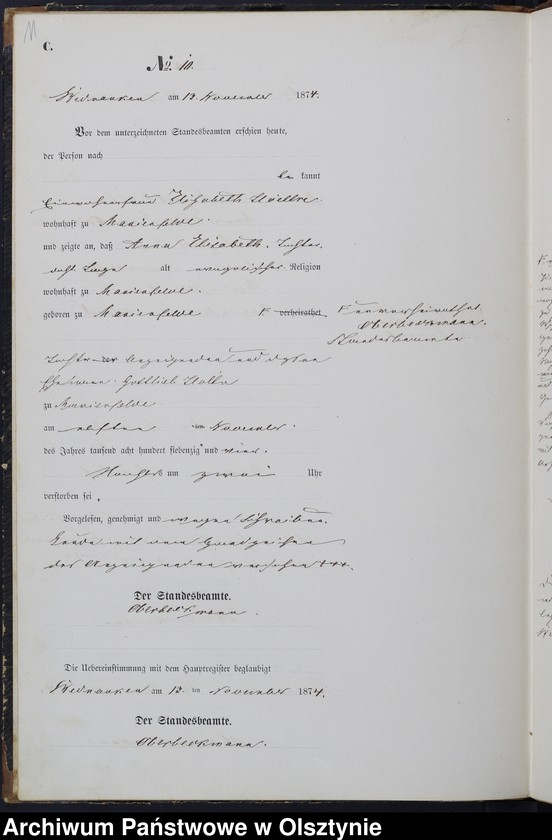 11
C.
No. 10.
am 12. November 1874.
Vor dem unterzeichneten Standesbeamten erschien heute,
der Person nach
be kannt
Einwohnerfrau Elisabeth
wohnhaft zu Marienfelde.
und zeigte an, daß Anna Elisabeth, Tochter,
acht Tage alt evangelischer Religion
wohnhaft zu Marienfelde.
geboren zu Marienfelde F verheirathet
F unverheirathet
Oberbeckmann.
Standesbeamte
Tochter der Anzeigenden und dessen
Ehemann Gottlieb
zu Marienfelde
am elften ten November
des Jahres tausend acht hundert siebenzig und vier.
Nachts um zwei Uhr
verstorben sei.
Vorgelesen, genehmigt und wegen Schreibun-
kunde mit dem Handzeichen
der Anzeigenden versehen +++.
Der Standesbeamte.
Oberbeckmann.
Die Uebereinstimmung mit dem Hauptregister beglaubigt
am 12. ten November 1874.
Der Standesbeamte.
Oberbeckmann.
Archiwum Państwowe w Olsztynie